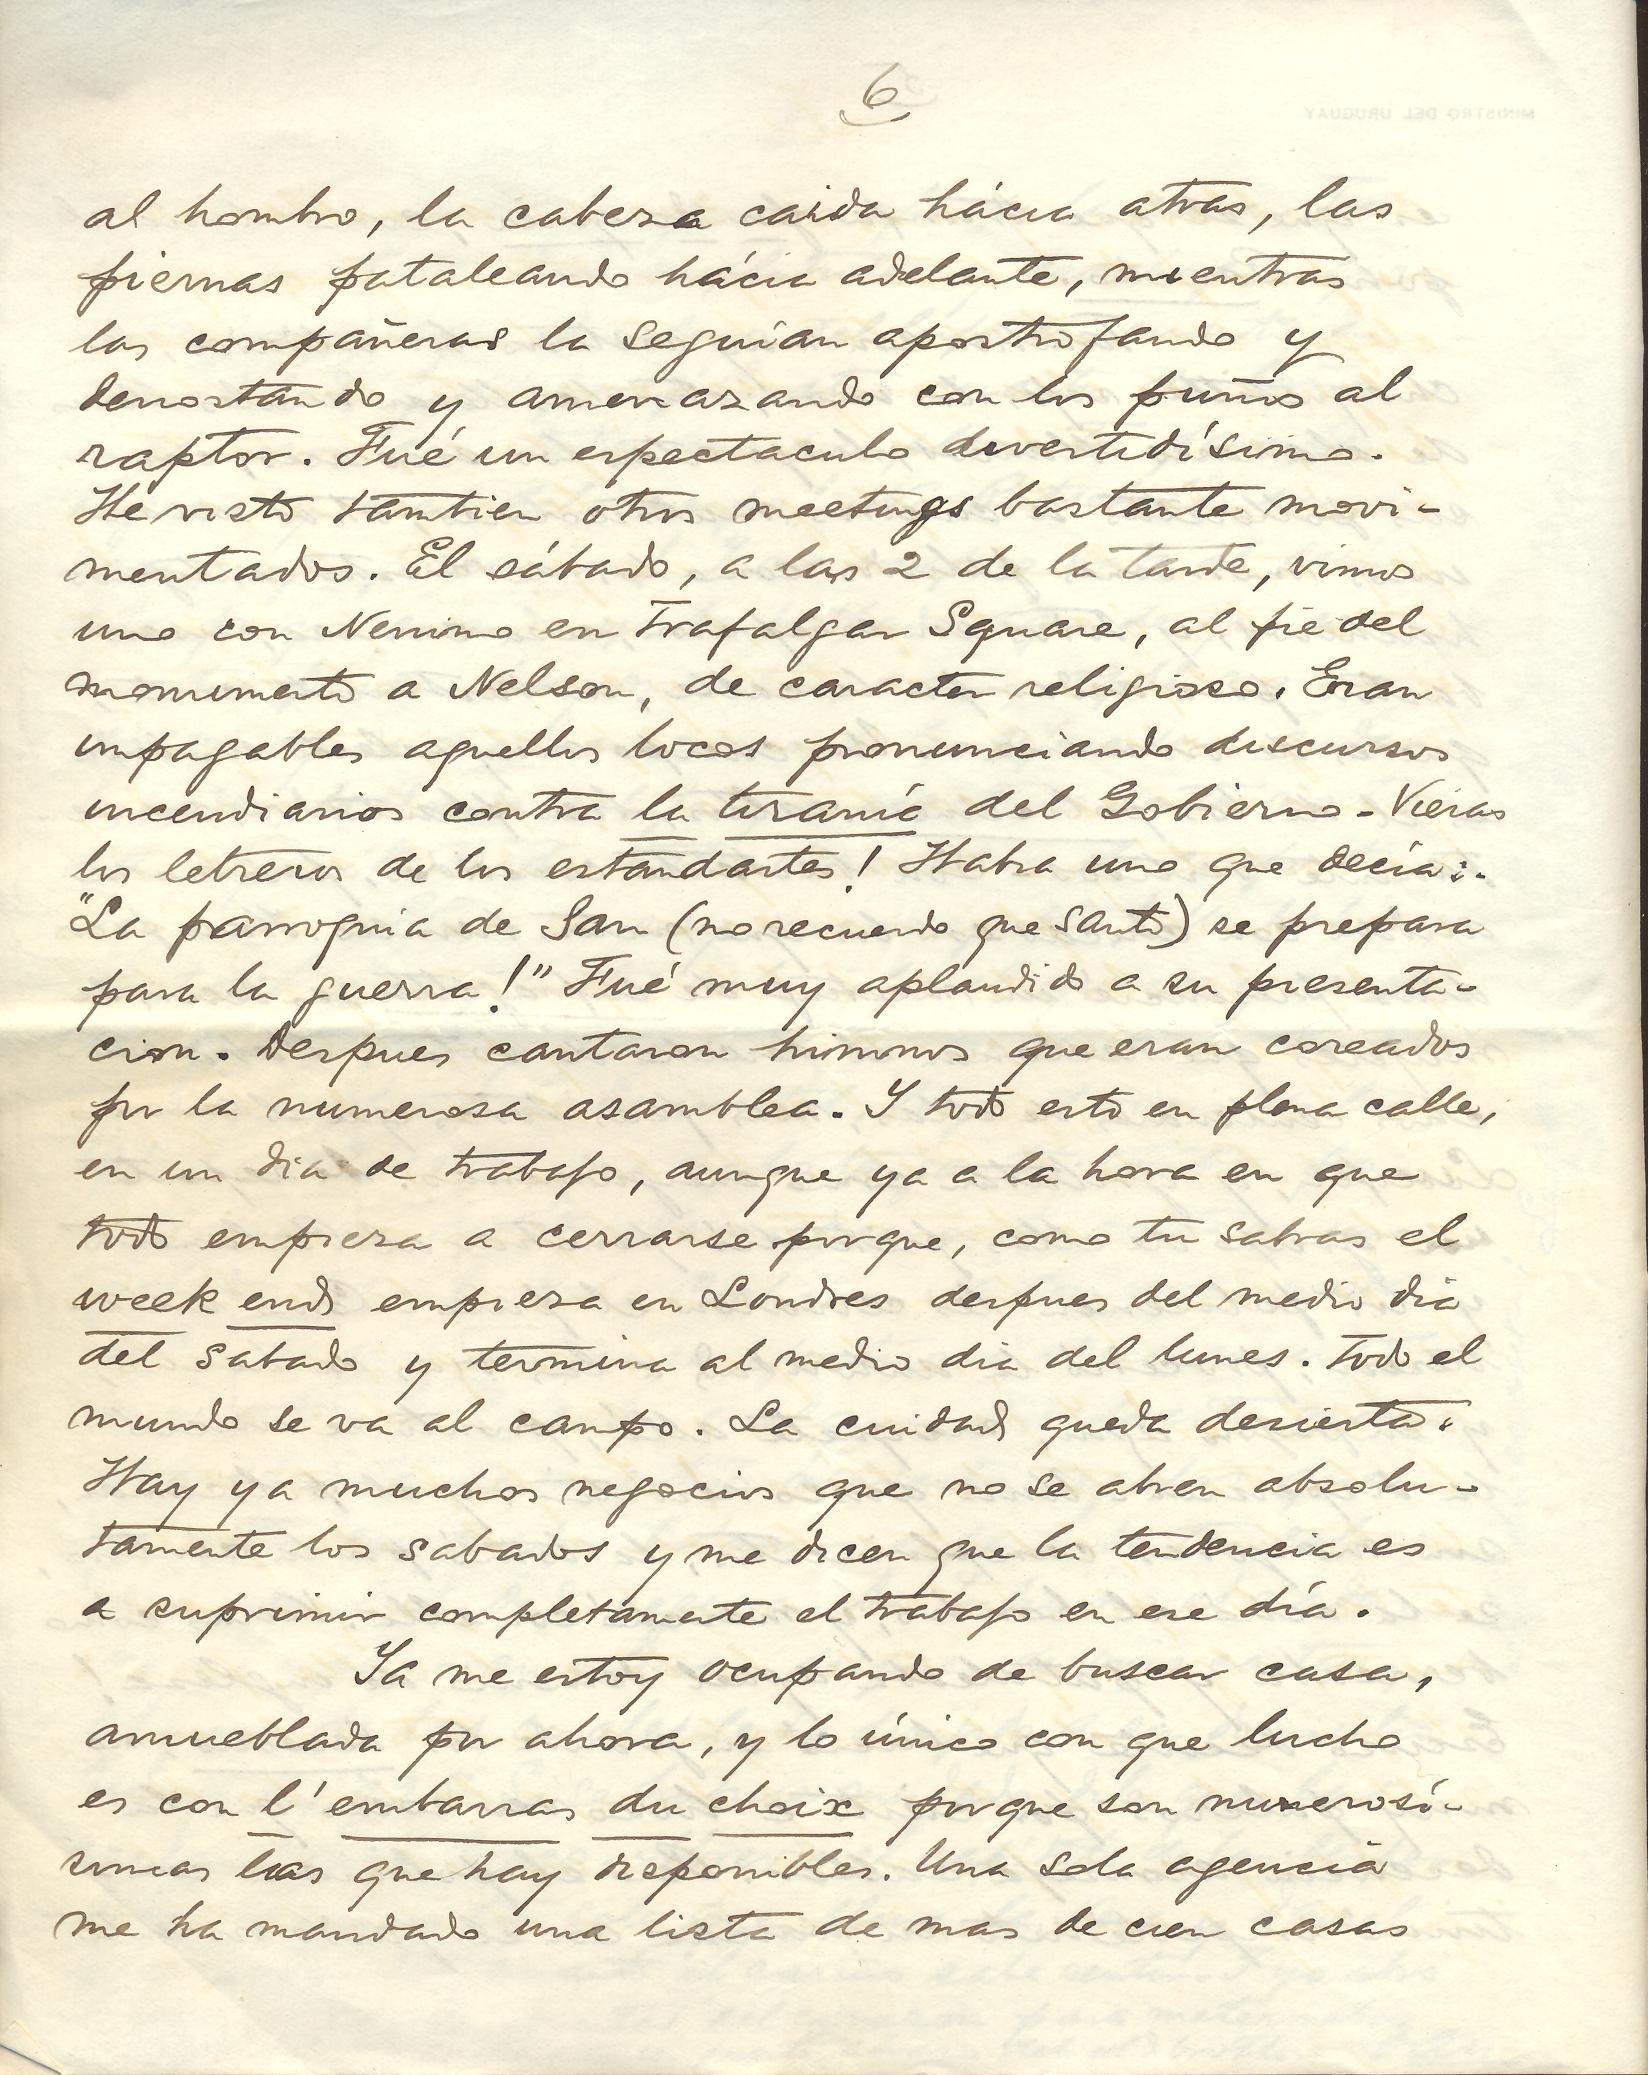 6
MINISTRO DEL URUGUAY
al hombro, la cabeza caida hácia atras, las
piernas pataleando hácia adelante, mientras
las compañeras la seguian apostrofando y
denostando y amenazando con los puños al
raptor. Fué un espectaculo divertidísimo.
He visto tambien otros meetings bastante movi-
mentados. El sábado, a las 2 de la tarde, vimos
uno con Nenino en Trafalgar Square, al pie del
monumento a Nelson, de caracter religioso. Eran
impagables aquellos locos pronunciando discursos
incendiarios contra la tiranía del Gobierno. Vieras
los letreros de los estandartes! Habia uno que decía:.
"La parroquia de San (no recuerdo que santo) se prepara
para la guerra!" Fué muy aplaudido a su presenta-
cion. Despues cantaron himnos que eran coreados
por la numerosa asamblea. Y todo esto en plena calle,
en un dia de trabajo, aunque ya a la hora en que
todo empieza a cerrarse porque, como tu sabras el
week ends empieza en Londres despues del medio dia
del sabado y termina al medio dia del lunes. Todo el
mundo se va al campo. La cuidad queda desierta.
Hay ya muchos negocios que no se abren absolu-
tamente los sabados y me dicen que la tendencia es
a suprimir completamente el trabajo en ese día.
Ya me estoy ocupando de buscar casa,
amueblada por ahora, y lo único con que lucho
es con l'embarras du choix porque son numerosí-
simas las que hay disponibles. Una sola agencia
me ha mandado una lista de mas de cien casas